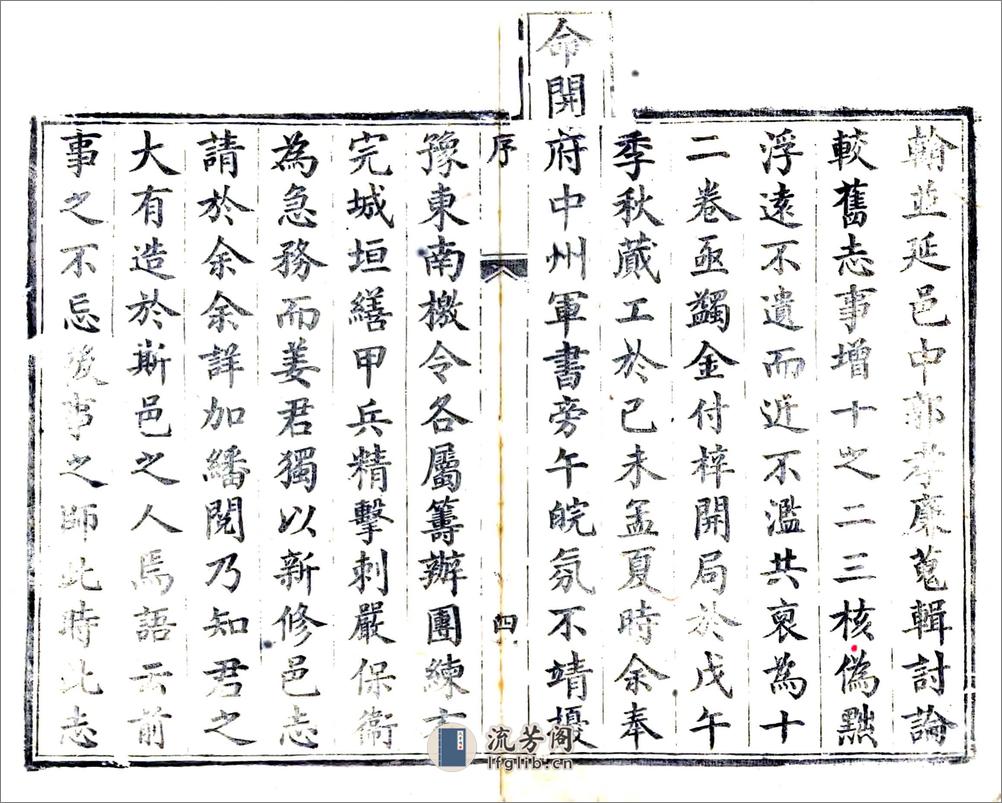 翰並延邑中郭孝廉蒐輯討論
較舊志事增十之二三核偽黜
浮遠不遺而近不濫共裒為十
二卷亟蠲金付梓開局於戊午
季秋蕆工於己未孟夏時余奉
命開府中州軍書旁午皖氛不靖擾
序 四
豫東南檄令各屬籌辦團練方
完城垣繕甲兵精擊刺嚴保衛
為急務而姜君獨以新修邑志
請於余余詳加繙閱乃知君之
大有造於斯邑之人焉語云前
事之不忘後事之師此時此志
流芳阁
lfglib.cn